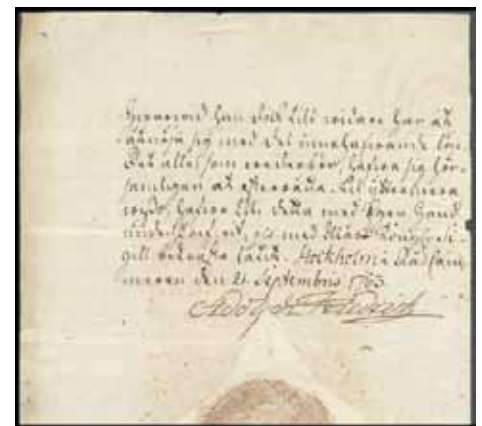 han dock tils widare har at
åtnöja sig med det innehafwande Lön.
Det alle som wederbör, hafwa sig hör-
samligen at efterrätta. Til yttermera
wisso, hafwe Wi detta med Egen Hand
och med Wårt Kongl. Si-
gill bekräfta låtit. Stockholm i Råd Cam-
maren den 21 Septembris 1763.
Adolph Friedrich